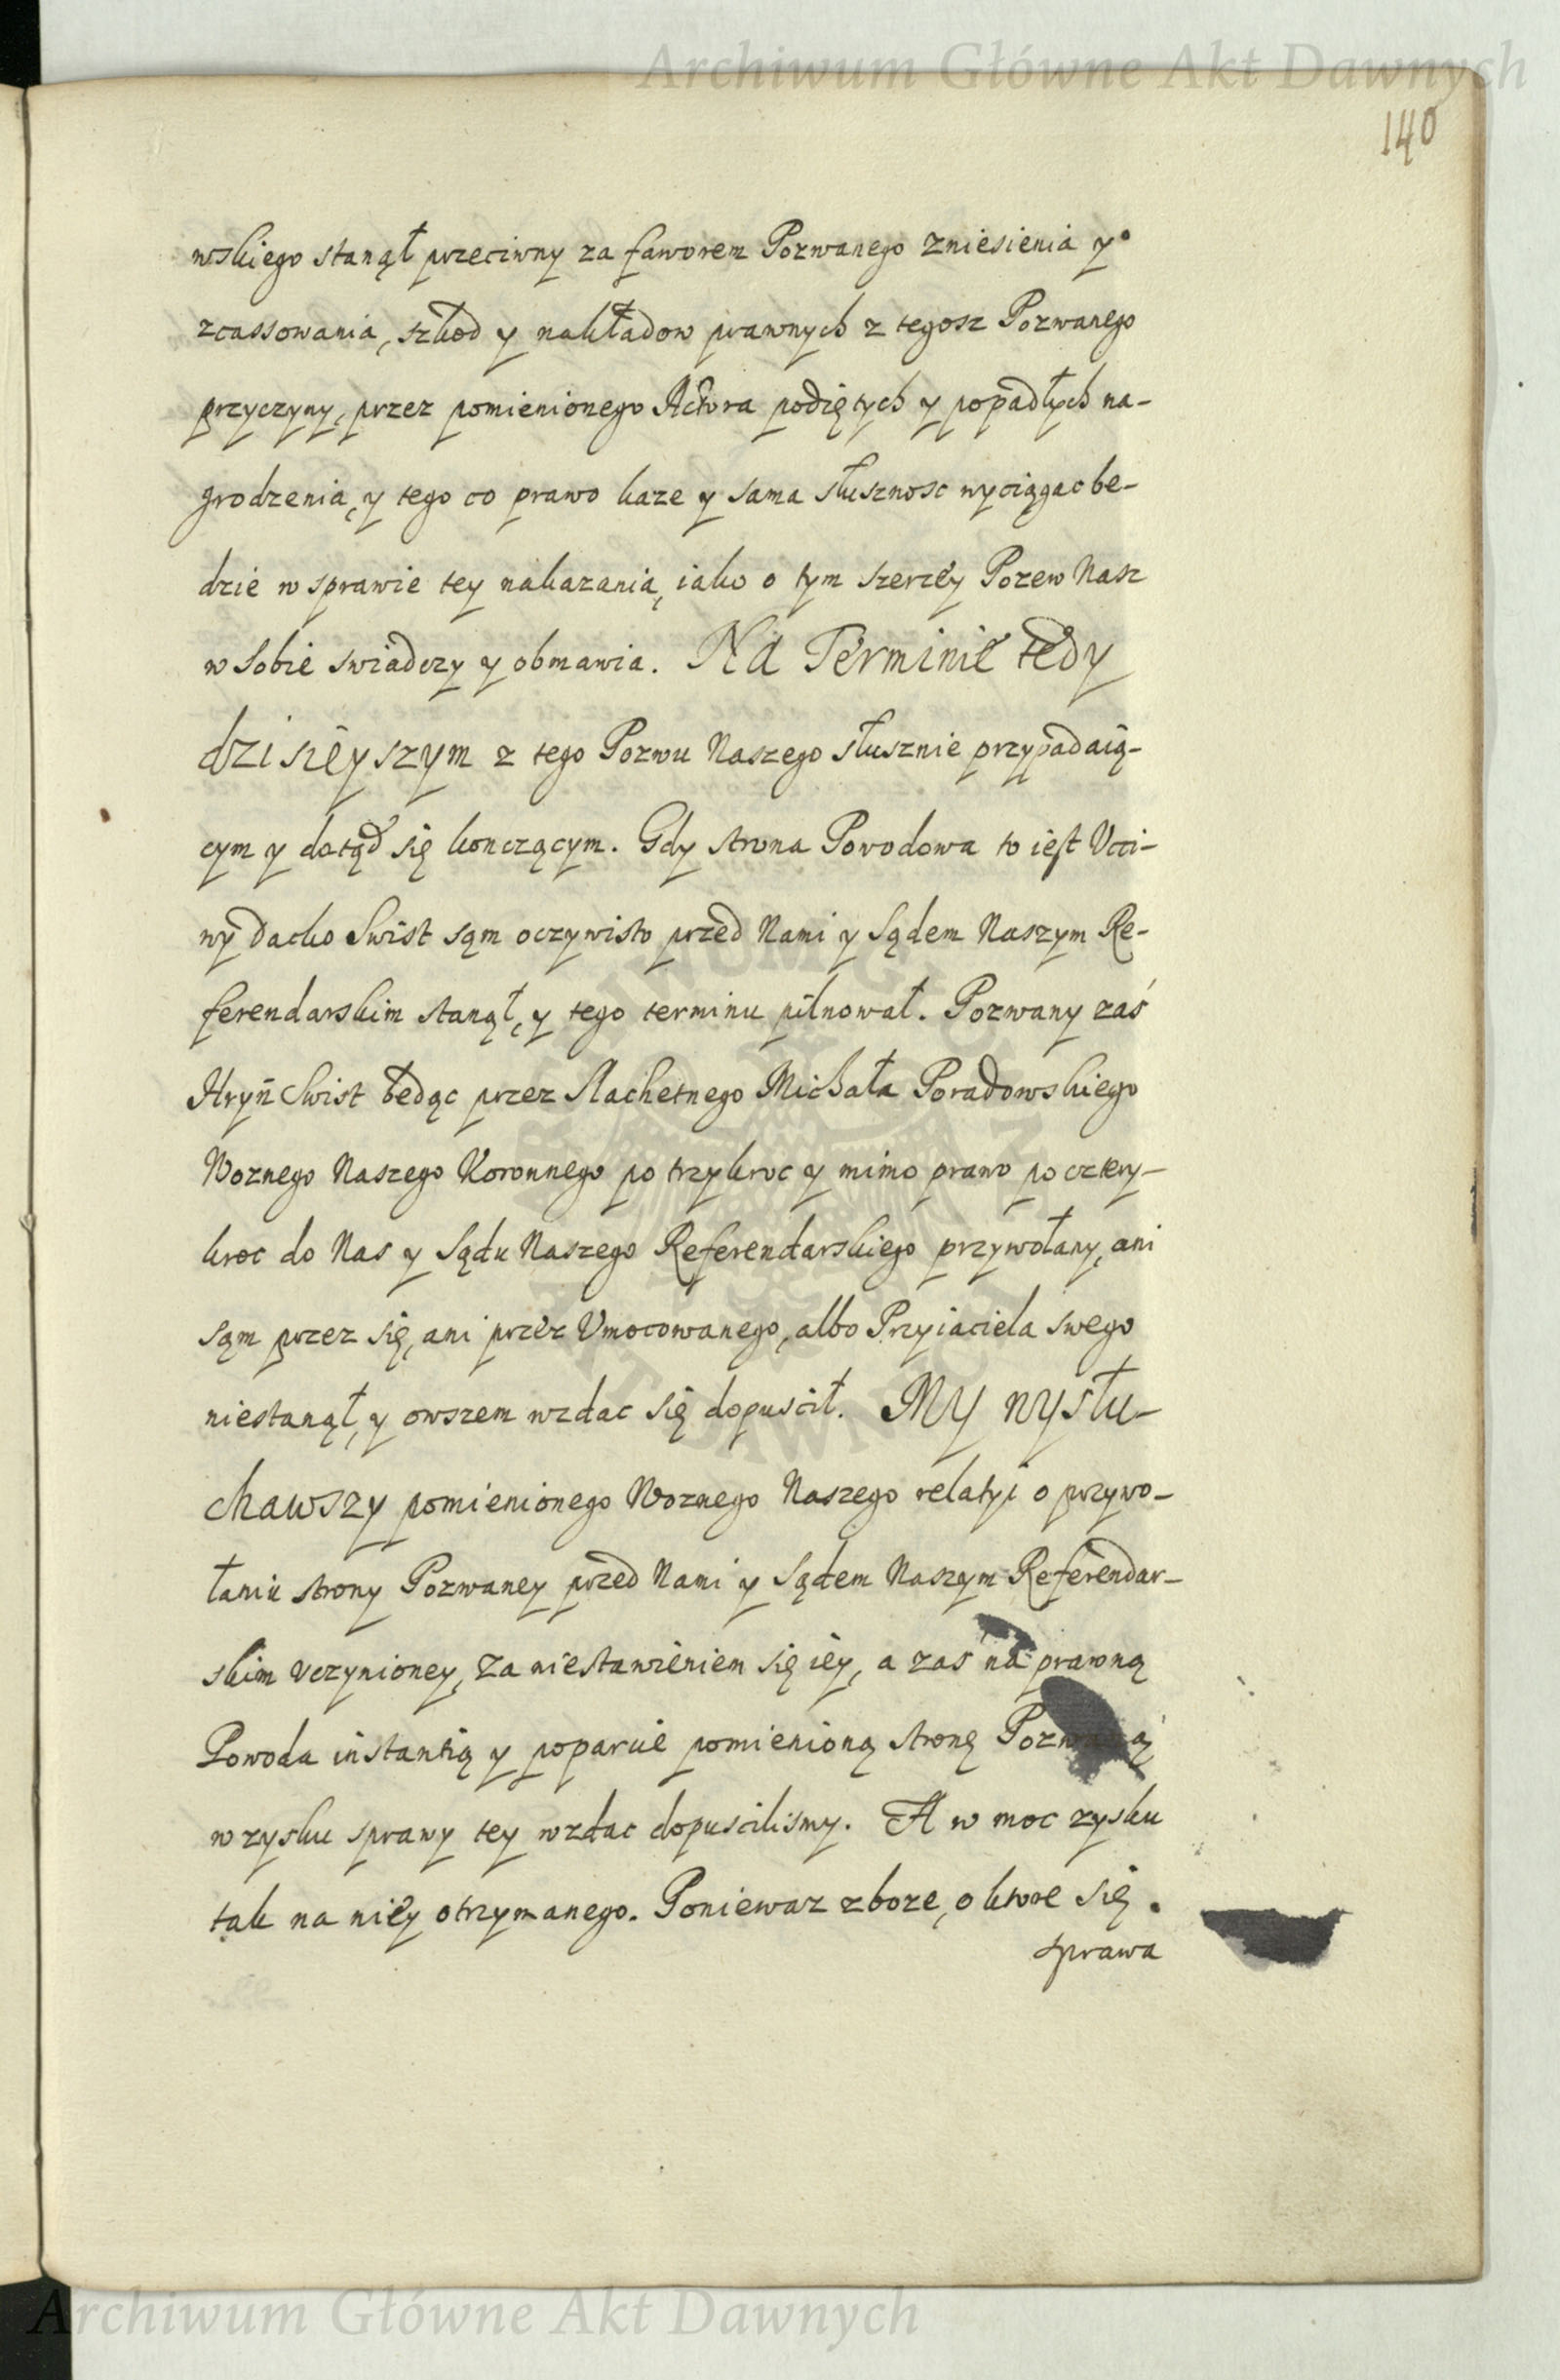 Archiwum Główne Akt Dawnych
140
wskiego stanął przeciwny za faworem Pozwanego zniesienia y
zcassowania, szkod y nakładow prawnych z tegosz Pozwanego
przyczyny, przez pomienionego Actora podiętych y popadłych na-
grodzenia, y tego co prawo kaze y sama słusznosc wyciągac be-
dzie w sprawie tey nakazania, iako o tym szerzey Pozew Nasz
w sobie swiadczy y obmawia. Na Terminie tedy
dzisieyszym z tego Pozwu Naszego słusznie przypadaią-
cym y dotąd się konczącym. Gdy strona Powodowa to iest Vcci-
wy Dacko Swist sąm oczywisto przed Nami y Sądem Naszym Re-
ferendarskim stanął, y tego terminu pilnował. Pozwany zaś
Hryn Swist bedąc przez Slachetnego Michała Poradowskiego
Woznego Naszego Koronnego po trzykroc y mimo prawo po cztery-
kroc do Nas y Sądu Naszego Referendarskiego przywołany, ani
sąm przez się, ani przez Vmocowanego, albo Przyiaciela swego
niestanął, y owszem wzdac się dopuscił. My wysłu-
chawszy pomienionego Woznego Naszego relatyi o przywo-
łaniu strony Pozwaney przed Nami y Sądem Naszym Referendar-
skim vczynioney, za niestawieniem się iey, a zas na prawną
Powoda instantią y poparcie pomienioną stronę Pozwaną
w zysku sprawy tey wzdac dopuscilismy. A w moc zysku
tak na niey otrzymanego. Poniewaz zboze, o ktore się
sprawa
Archiwum Główne Akt Dawnych